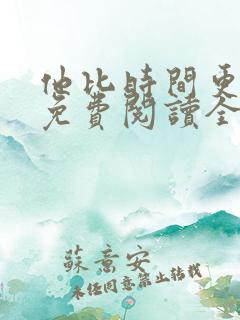 他比時間更
免費閱讀全
蘇意安
未經同意禁止轉載